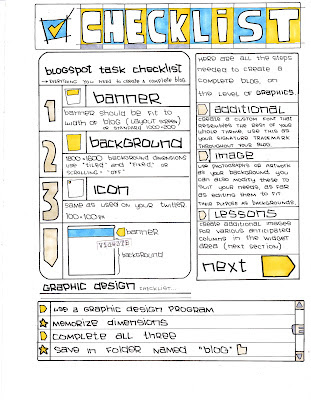 CHECKLIST
blogspot task checklist
→ EVERYTHING YOU NEED TO CREATE A COMPLETE BLOG.
1
banner
banner should be fit to
width of blog (layout
or standard
2
background
1800x1600 background dimensions
use "tiled" and "fixed" or
scrolling = "off"
3
icon
same as used on your twitter
100x100 px
banner
background
here are all the steps
needed to create a
complete blog, on
the level of graphics.
additional
create a custom font that
resembles the rest of your
whole theme. use this as
your signature trademark
throughout your blog.
image
use photographs or artwork
as your background. you
can also modify these to
suit your needs, as far
as editing them to fit
this purpose as background.
lessons
create additional images
for various anticipated
columns in the widget
area (next section)
next
graphic design checklist...
use a graphic design program
memorize dimensions
complete all three
save in folder named "blog"